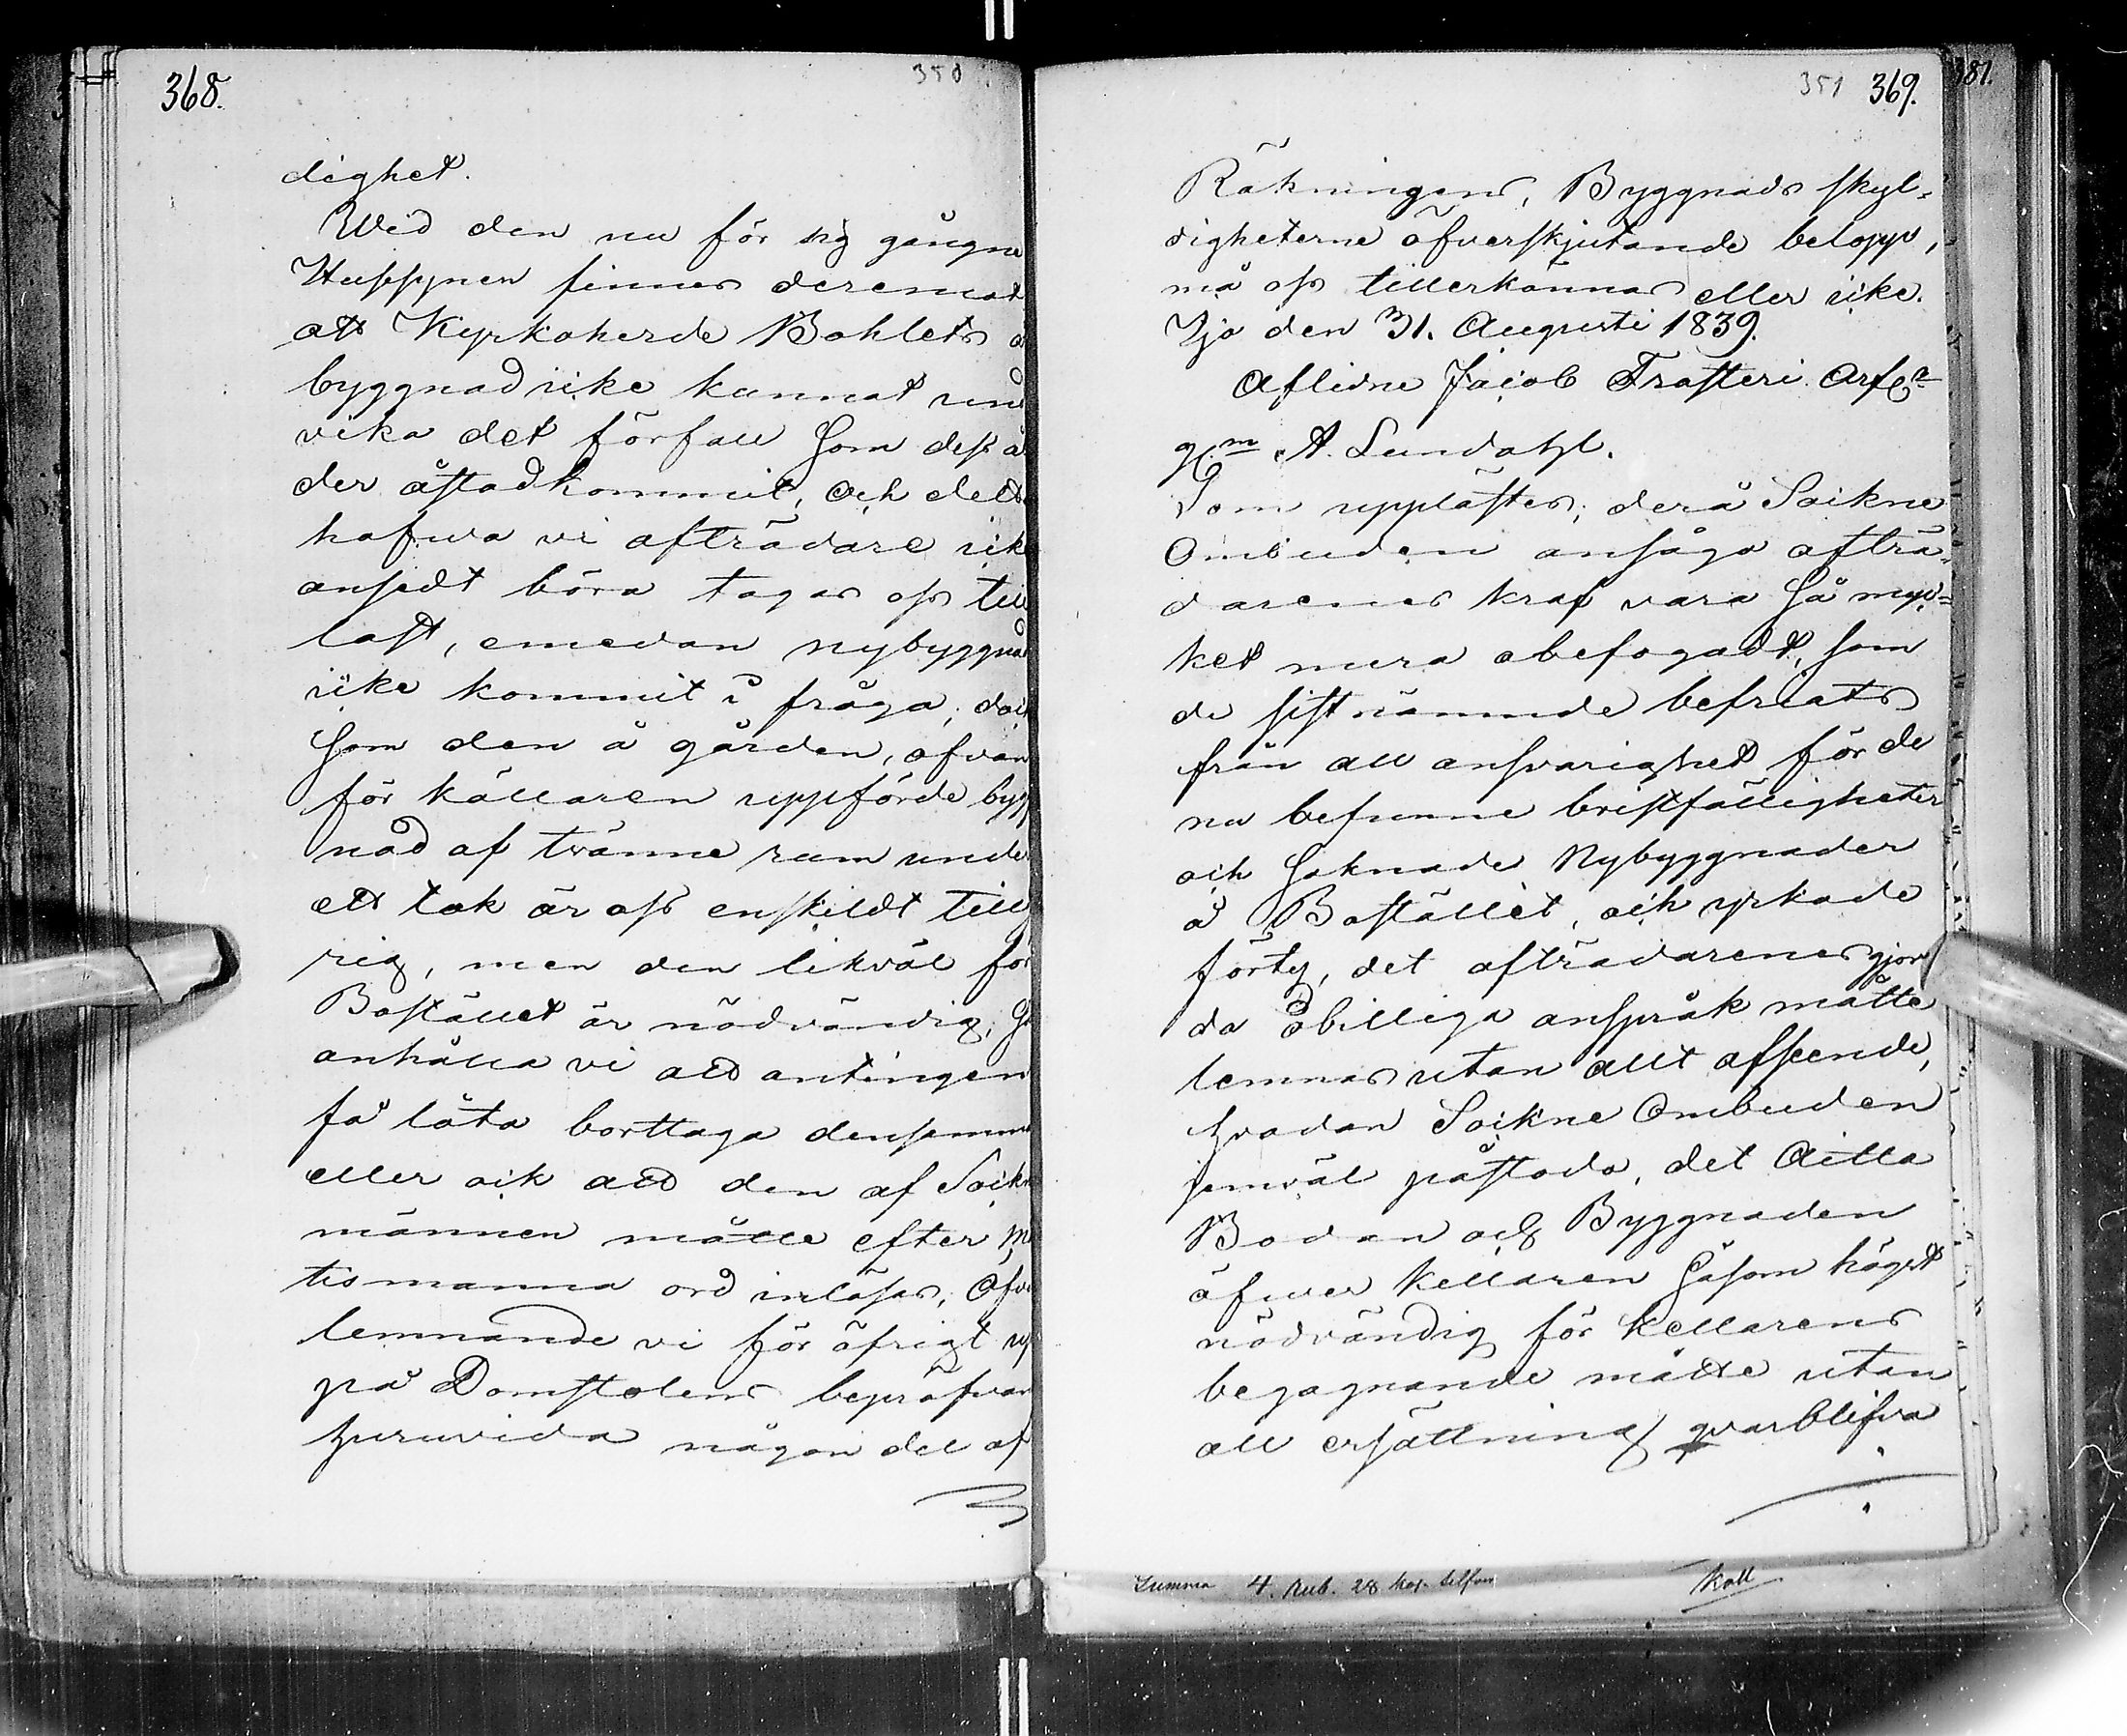 368.
350
dighet.
Wid den nu för sig gångne
Huussynen finnes deremot
att Kyrkoherde Bohlets å
byggnad icke kunnat und
vika det förfall Som dess ål
der åstadkommit, och dett
hafwa vi afträdare icke
ansedt böra tagas oss till
last, emedan nybyggnad
icke kommit i fråga; doc
Som den å gården, ofvan
för källaren uppförde bygg
nad af tvänne rum under
ett tak är oss enskildt tillh
rig, men den likväl för
Bostället är nödvändig, Så
anhålla vi att antingen
få låta borttaga densamma
eller ock att den af Sokn
männen måtte efter Me
tismanna ord inlösas, Öfver
lemnande vi för öfrigt up
på Domstolens bepröfvan
huruvida någon del af
351 369.
381.
Räkningens, Byggnads skyl-
digheterne öfverskjutande belopp,
må oss tillerkännas eller icke.
Jjo den 31. Augusti 1839.
Aflidne Jacob Frosteri Arf.
gm A. Lundahl.
Som upplästes; derå Sockne
Ombuden ansågo afträ-
darenes kraf vara Så myc-
ket mera obefogadt, som
de sistnämnde befriats
från all ansvarighet för de
nu befunne bristfälligheter
och Saknade Nybyggnader
å Bostället, och yrkade
förty, det afträdarenes gjor
da obilliga anspråk måtte
lemnas utan allt afseende,
hvadan Sockne Ombuden
jemväl påstodo, det Aitta
Bodan och Byggnaden
öfwer Kellaren Såsom högst
nödvändig för Kellarens
begagnande måtte utan
all ersättning qvarblifva
Summa 4. Rub. 28 kop. silfver
Koll